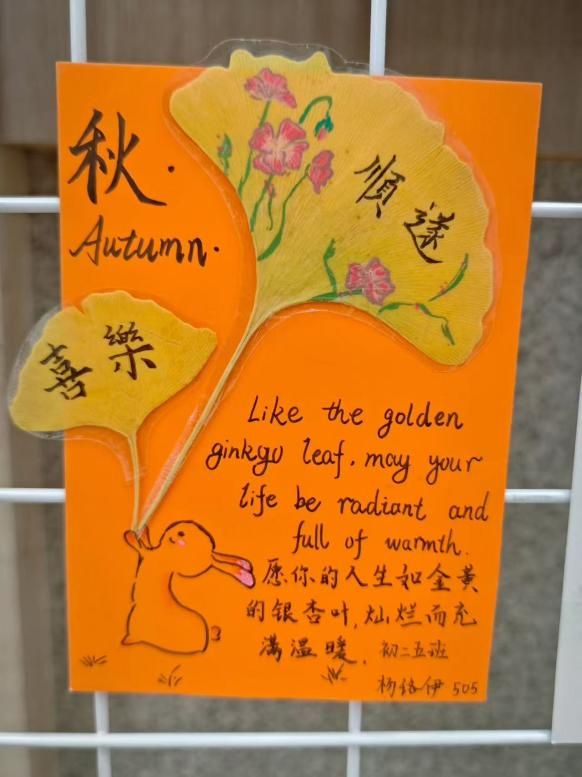 秋.
Autumn.
順遂
喜樂
Like the golden
ginkgo leaf. may your
life be radiant and
full of warmth.
愿你的人生如金黄
的银杏叶,灿烂而充
满温暖. 初二五班
杨洛伊 505